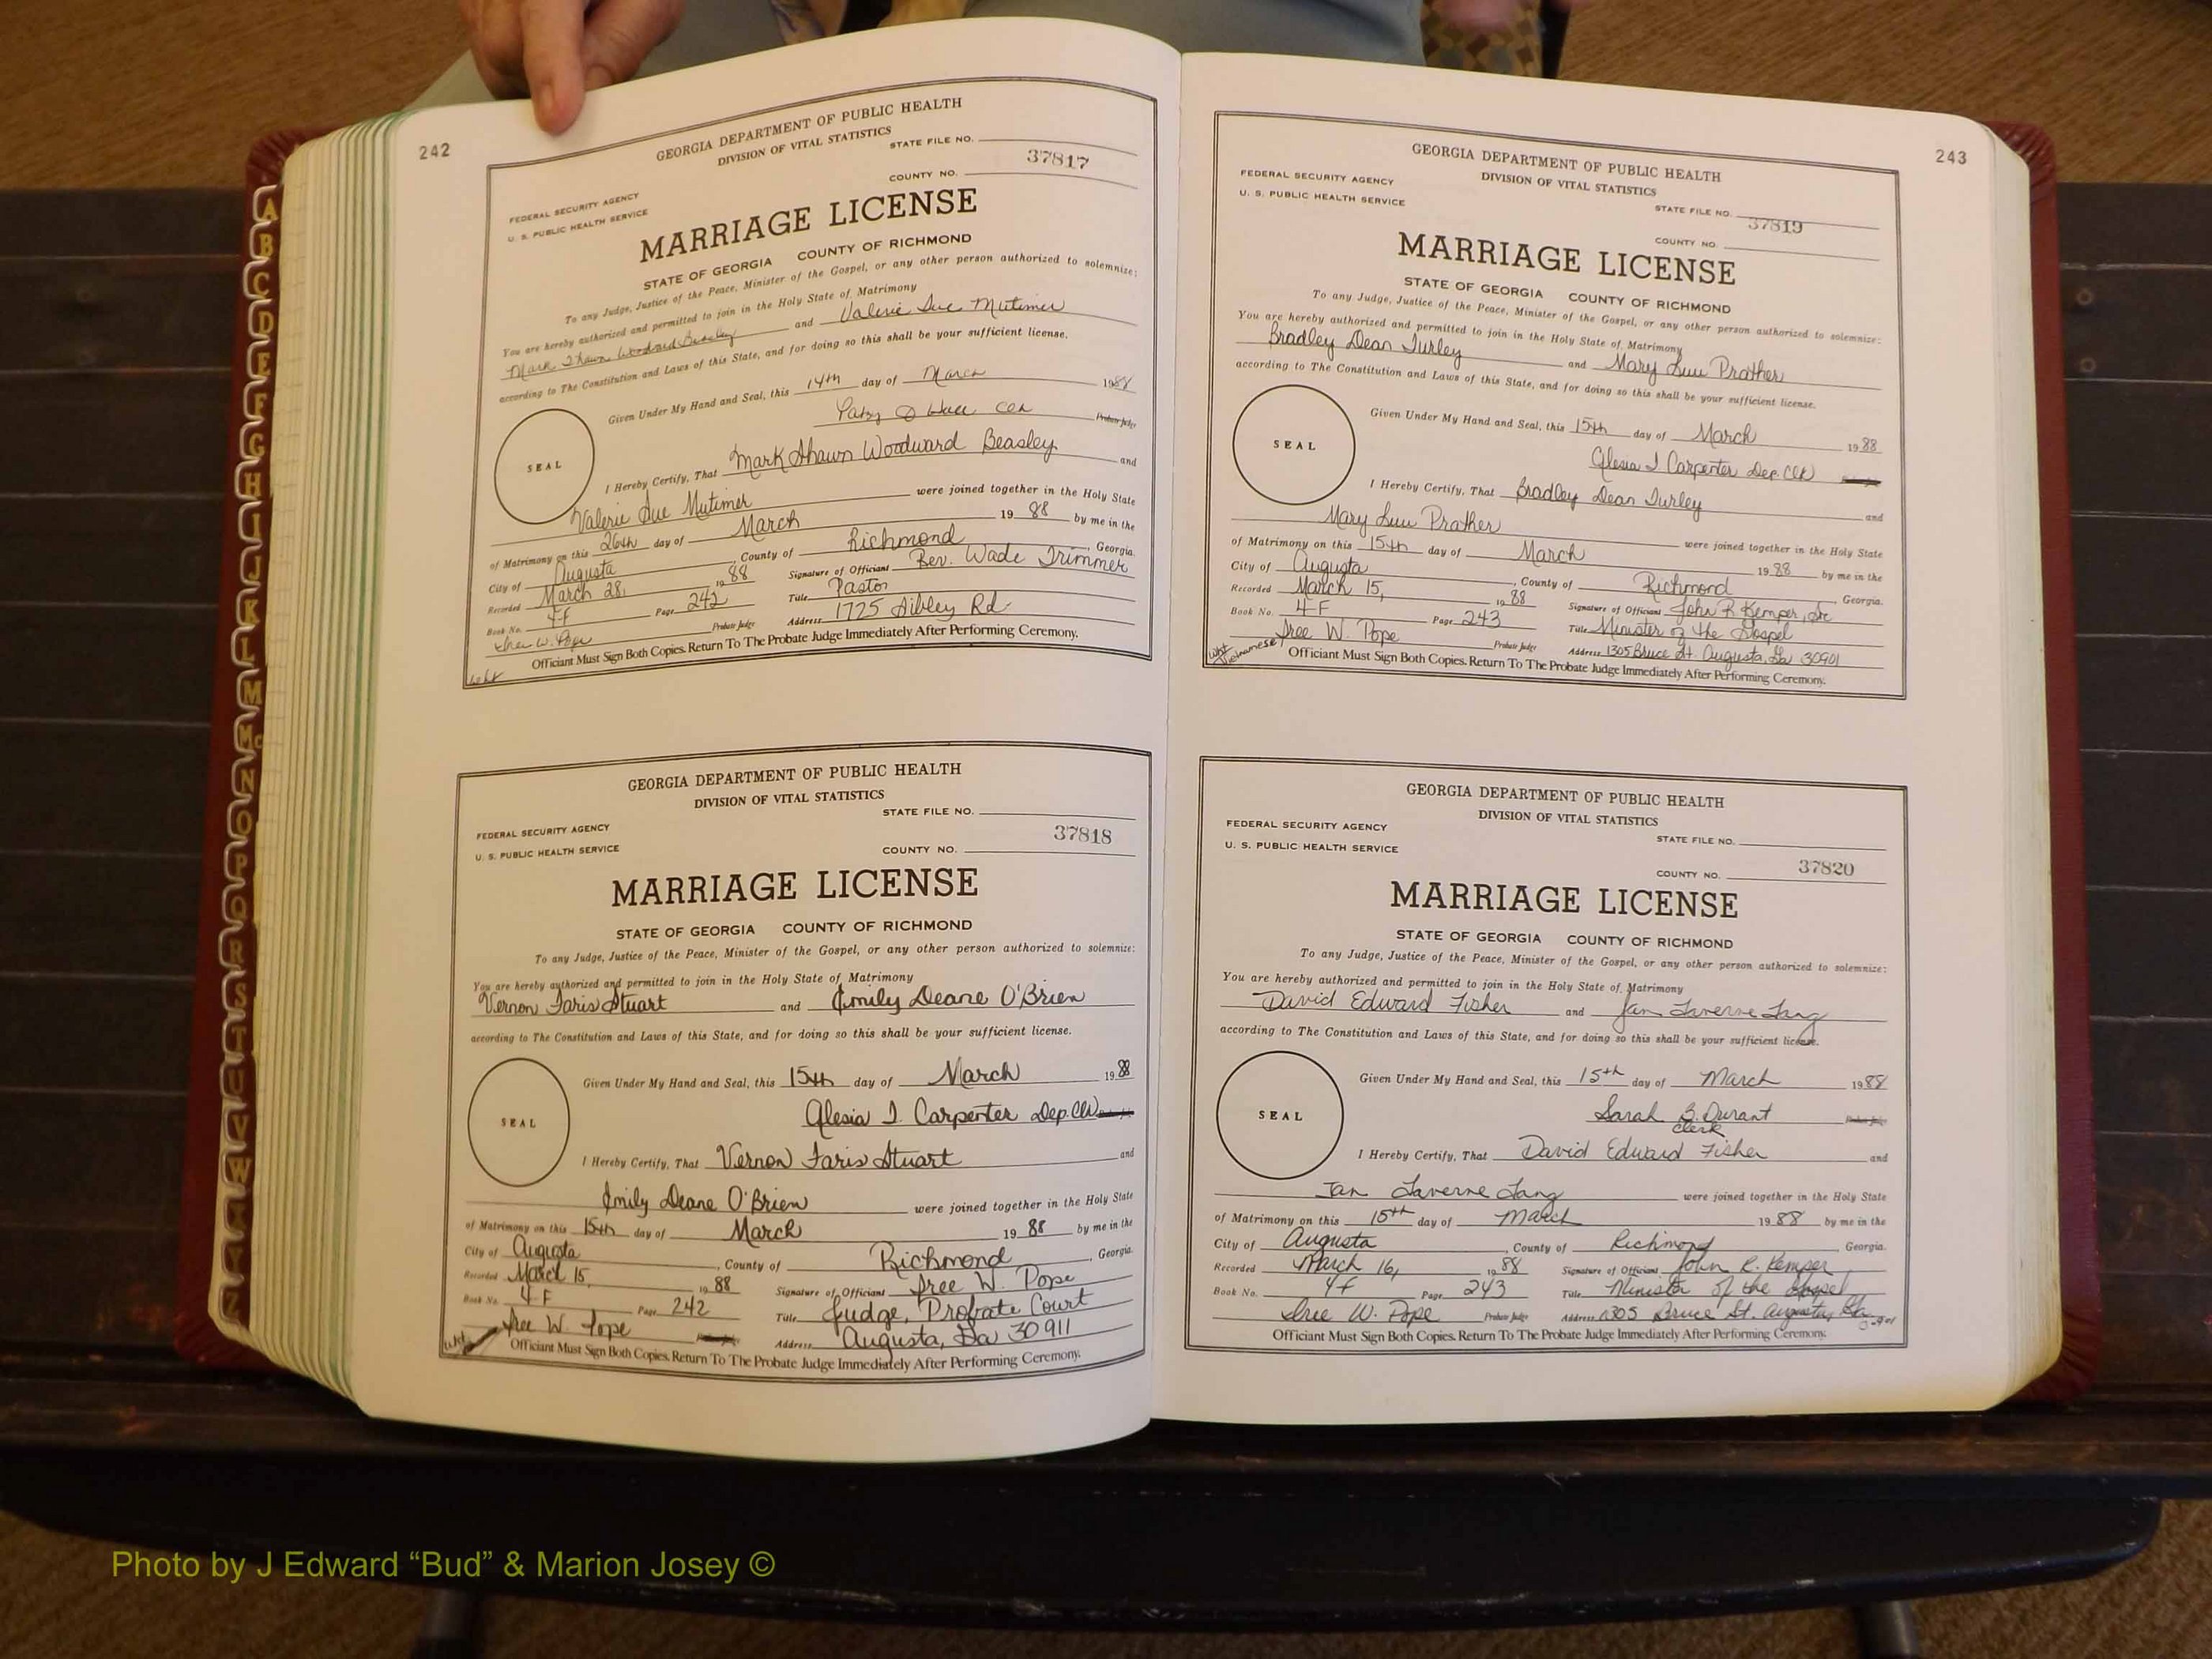 242
GEORGIA DEPARTMENT OF PUBLIC HEALTH
DIVISION OF VITAL STATISTICS
STATE FILE NO.
37817
COUNTY NO.
FEDERAL SECURITY AGENCY
U. S. PUBLIC HEALTH SERVICE
MARRIAGE LICENSE
STATE OF GEORGIA COUNTY OF RICHMOND
To any Judge, Justice of the Peace, Minister of the Gospel, or any other person authorized to solemnize:
You are hereby authorized and permitted to join in the Holy State of Matrimony
Mark Shawn Woodward Beasley and Valerie Sue Mutimer
according to The Constitution and Laws of this State, and for doing so this shall be your sufficient license.
Given Under My Hand and Seal, this 14th day of March 1988
Probate Judge
SEAL
I Hereby Certify, That Mark Shawn Woodward Beasley and
Valerie Sue Mutimer were joined together in the Holy State
of Matrimony on this 26th day of March 19 88 by me in the
City of Augusta, County of Richmond, Georgia.
Recorded March 28, 19 88 Signature of Officiant Rev. Wade Trimmer
Book No. 4-F Page 242 Title Pastor
W. Pope Probate Judge Address 1725 Sibley Rd.
Officiant Must Sign Both Copies. Return To The Probate Judge Immediately After Performing Ceremony.
wht
GEORGIA DEPARTMENT OF PUBLIC HEALTH
DIVISION OF VITAL STATISTICS
STATE FILE NO.
FEDERAL SECURITY AGENCY
37818
U. S. PUBLIC HEALTH SERVICE
COUNTY NO.
MARRIAGE LICENSE
STATE OF GEORGIA COUNTY OF RICHMOND
To any Judge, Justice of the Peace, Minister of the Gospel, or any other person authorized to solemnize:
You are hereby authorized and permitted to join in the Holy State of Matrimony
Vernon Faris Stuart and Emily Deane O'Brien
according to The Constitution and Laws of this State, and for doing so this shall be your sufficient license.
Given Under My Hand and Seal, this 15th day of March 1988
Alesia J. Carpenter Dep. Clk
SEAL
I Hereby Certify, That Vernon Faris Stuart and
Emily Deane O'Brien were joined together in the Holy State
of Matrimony on this 15th day of March 19 88 by me in the
City of Augusta, County of Richmond, Georgia.
Recorded March 15, 19 88 Signature of Officiant Iree W. Pope
Book No. 4-F Page 242 Title Judge, Probate Court
Iree W. Pope Address Augusta, Ga 30911
wht
Officiant Must Sign Both Copies. Return To The Probate Judge Immediately After Performing Ceremony.
243
GEORGIA DEPARTMENT OF PUBLIC HEALTH
DIVISION OF VITAL STATISTICS
FEDERAL SECURITY AGENCY
U. S. PUBLIC HEALTH SERVICE
STATE FILE NO.
37819
COUNTY NO.
MARRIAGE LICENSE
STATE OF GEORGIA COUNTY OF RICHMOND
To any Judge, Justice of the Peace, Minister of the Gospel, or any other person authorized to solemnize:
You are hereby authorized and permitted to join in the Holy State of Matrimony
Bradley Dean Turley and Mary Luu Prather
according to The Constitution and Laws of this State, and for doing so this shall be your sufficient license.
Given Under My Hand and Seal, this 15th day of March 19 88
Alesia J Carpenter Dep. Clk
SEAL
I Hereby Certify, That Bradley Dean Turley and
Mary Luu Prather were joined together in the Holy State
of Matrimony on this 15th day of March 19 88 by me in the
City of Augusta, County of Richmond Georgia.
Recorded March 15, 19 88 Signature of Officiant John R Kemper, Sr
Book No. 4-F Page 243 Title Minister of the Gospel
Iree W. Pope Probate Judge Address 1305 Bruce St. Augusta, Ga 30901
wht Vietnamese
Officiant Must Sign Both Copies. Return To The Probate Judge Immediately After Performing Ceremony.
GEORGIA DEPARTMENT OF PUBLIC HEALTH
DIVISION OF VITAL STATISTICS
FEDERAL SECURITY AGENCY
STATE FILE NO.
U. S. PUBLIC HEALTH SERVICE
37820
COUNTY NO.
MARRIAGE LICENSE
STATE OF GEORGIA COUNTY OF RICHMOND
To any Judge, Justice of the Peace, Minister of the Gospel, or any other person authorized to solemnize:
You are hereby authorized and permitted to join in the Holy State of Matrimony
David Edward Fisher and Jan Laverne Lang
according to The Constitution and Laws of this State, and for doing so this shall be your sufficient license.
Given Under My Hand and Seal, this 15th day of March 1988
Sarah B. Durant
clerk
SEAL
I Hereby Certify, That David Edward Fisher and
Jan Laverne Lang were joined together in the Holy State
of Matrimony on this 15th day of March 19 88 by me in the
City of Augusta, County of Richmond, Georgia.
Recorded March 16, 19 88 Signature of Officiant John R. Kemper
Book No. 4f Page 243 Title Minister of the Gospel
Iree W. Pope Probate Judge Address 1305 Bruce St. Augusta, Ga
Officiant Must Sign Both Copies. Return To The Probate Judge Immediately After Performing Ceremony.
A
B
C
D
E
F
G
H
I
J
K
L
M
Mc
N
O
P
Q
R
S
T
U
V
W
Photo by J Edward “Bud” & Marion Josey ©